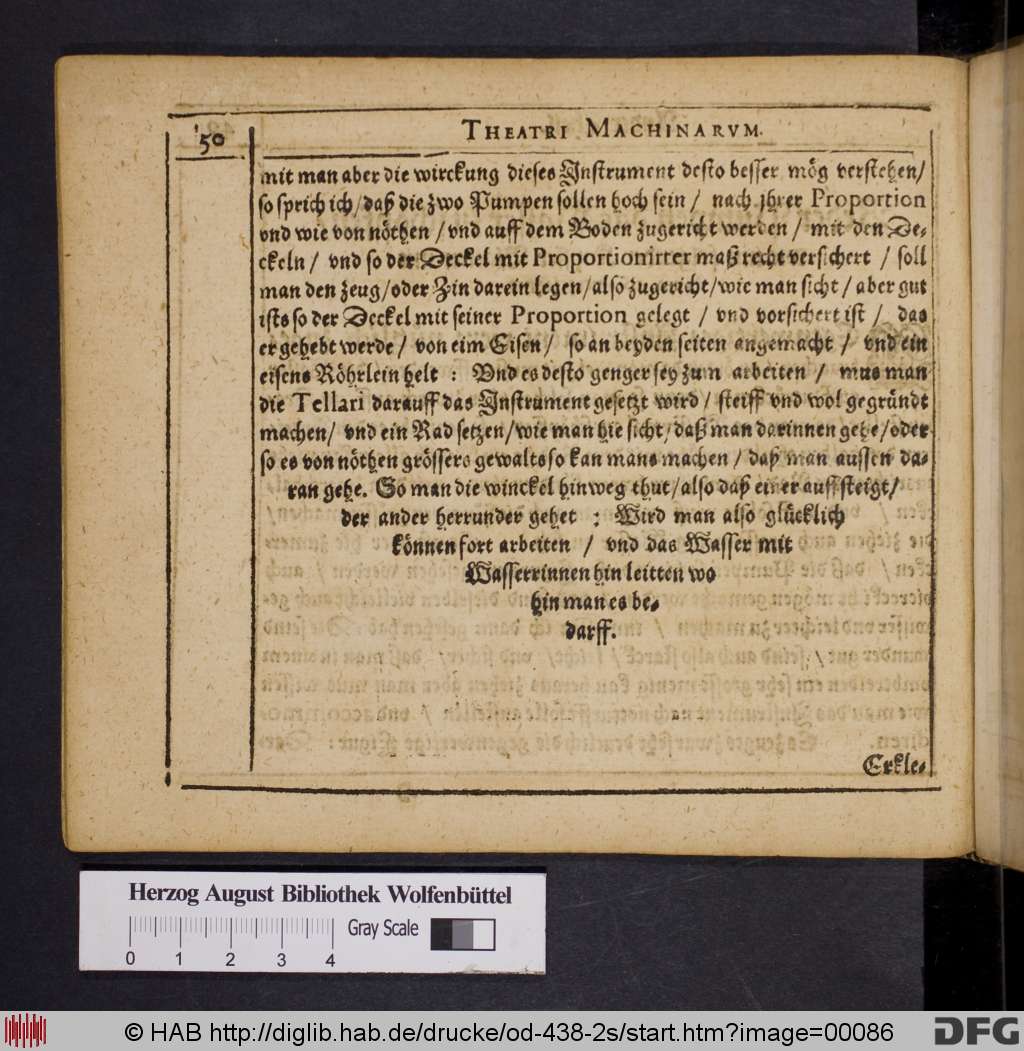 50
THEATRI MACHINARVM.
mit man aber die wirckung dieses Instrument desto besser mög verstehen/
so sprich ich/ daß die zwo Pumpen sollen hoch sein / nach jhrer Proportion
vnd wie von nöthen / vnd auff dem Boden zugericht werden / mit den De-
ckeln / vnd so der Deckel mit Proportionirter maß recht versichert / soll
man den zeug/oder Zin darein legen/also zugericht/wie man sicht / aber gut
ists so der Deckel mit seiner Proportion gelegt / vnd vorsichert ist / das
er gehebt werde / von eim Eisen / so an beyden seiten angemacht / vnd ein
eisens Röhrlein helt : Vnd es desto genger sey zum arbeiten / mus man
die Tellari darauff das Instrument gesetzt wird / steiff vnd wol gegründt
machen/ vnd ein Rad setzen/wie man hie sicht/daß man darinnen gehe/oder
so es von nöthen grössers gewalts so kan mans machen / daß man aussen da-
ran gehe. So man die winckel hinweg thut/also daß einer auff steigt/
der ander herrunder gehet : Wird man also glücklich
können fort arbeiten / vnd das Wasser mit
Wasserrinnen hin leitten wo
hin man es be-
darff.
Erkle-
Herzog August Bibliothek Wolfenbüttel
Gray Scale
0 1 2 3 4
© HAB http://diglib.hab.de/drucke/od-438-2s/start.htm?image=00086
DFG